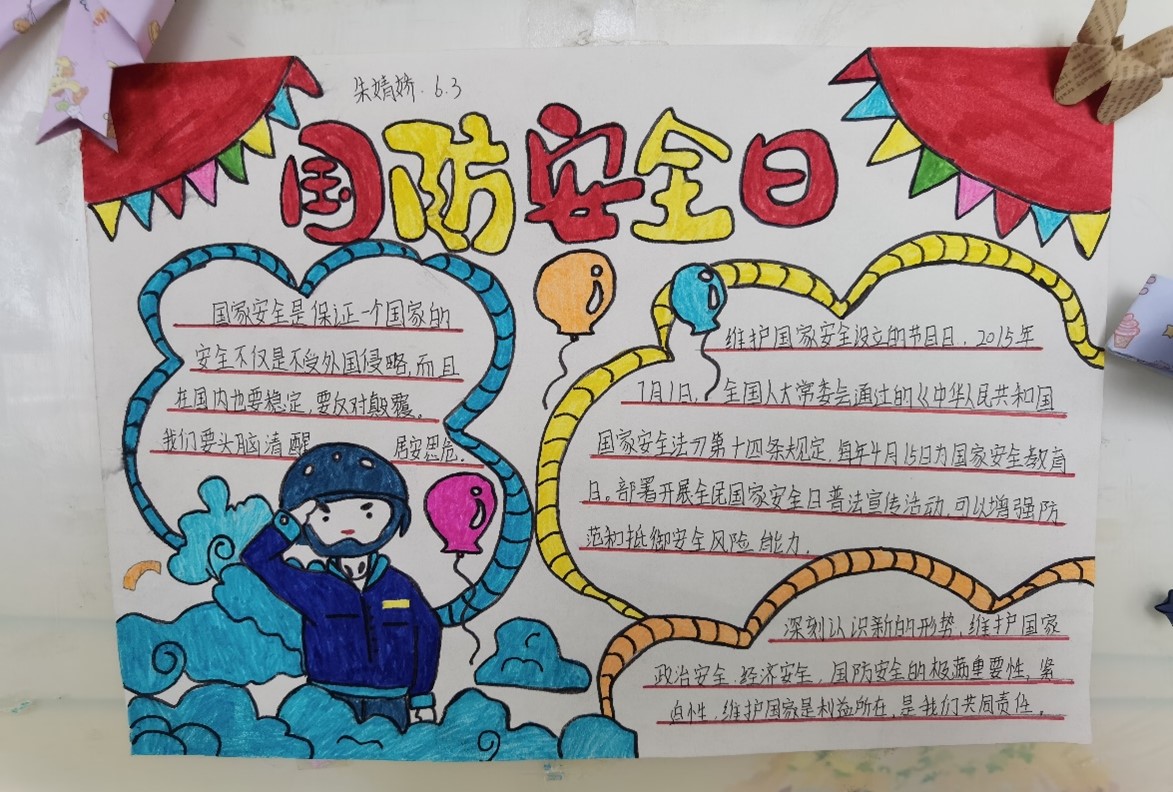 朱婧娇.6.3
国防安全日
国家安全是保证一个国家的
安全不仅是不受外国侵略,而且
在国内也要稳定,要反对颠覆。
我们要头脑清醒 居安思危.
维护国家安全设立的节目日.2015年
7月1日, 全国人大常委会通过的《中华人民共和国
国家安全法》第十四条规定,每年4月15日为国家安全教育
日。部署开展全民国家安全日普法宣传活动,可以增强防
范和抵御安全风险能力.
深刻认识新的形势,维护国家
政治安全.经济安全,国防安全的极端重要性,紧
迫性,维护国家是利益所在,是我们共同责任.